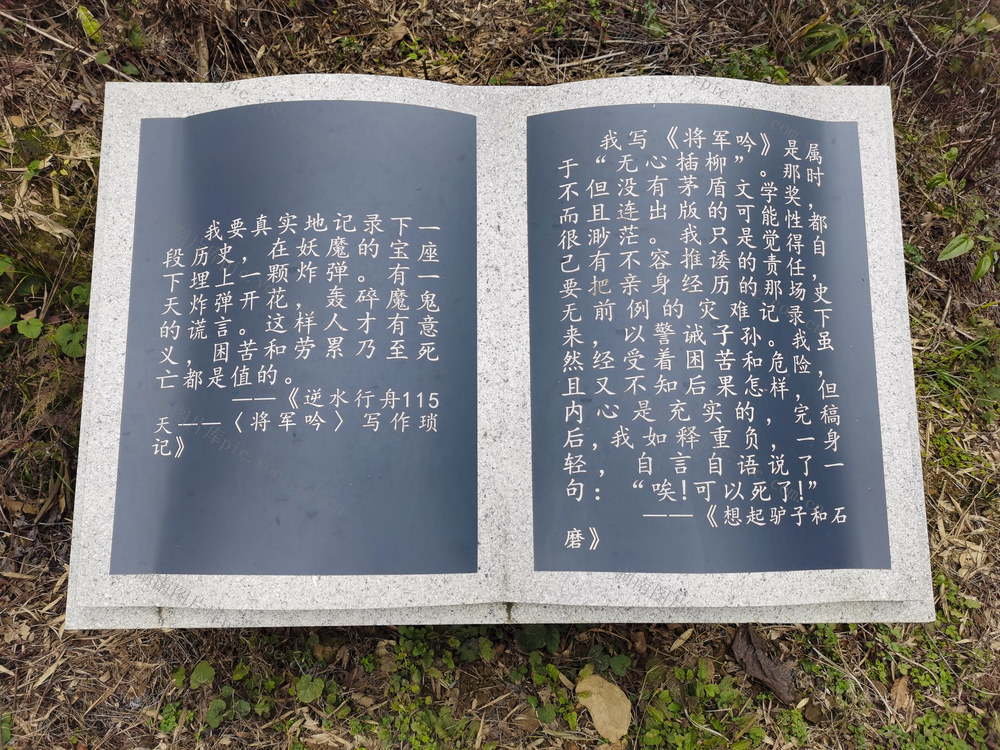 我要真实地记录下一
段历史，在妖魔的宝座
下埋上一颗炸弹。有一
天炸弹开花，轰碎魔鬼
的谎言。这样人才有意
义，困苦和劳累乃至死
亡都是值的。
——《逆水行舟115
天——〈将军吟〉写作琐
记》
我写《将军吟》是属
于“无心插柳”。那时
不但没有茅盾文学奖，
而且连出版的可能性都
很渺茫。我只是觉得自
己有不容推诿的责任，
要把亲身经历的那场史
无前例的灾难记录下
来，以警诫子孙。我虽
然经受着困苦和危险，
且又不知后果怎样，但
内心是充实的，完稿
后，我如释重负，一身
轻，自言自语说了一
句：“唉！可以死了！”
——《想起驴子和石
磨》